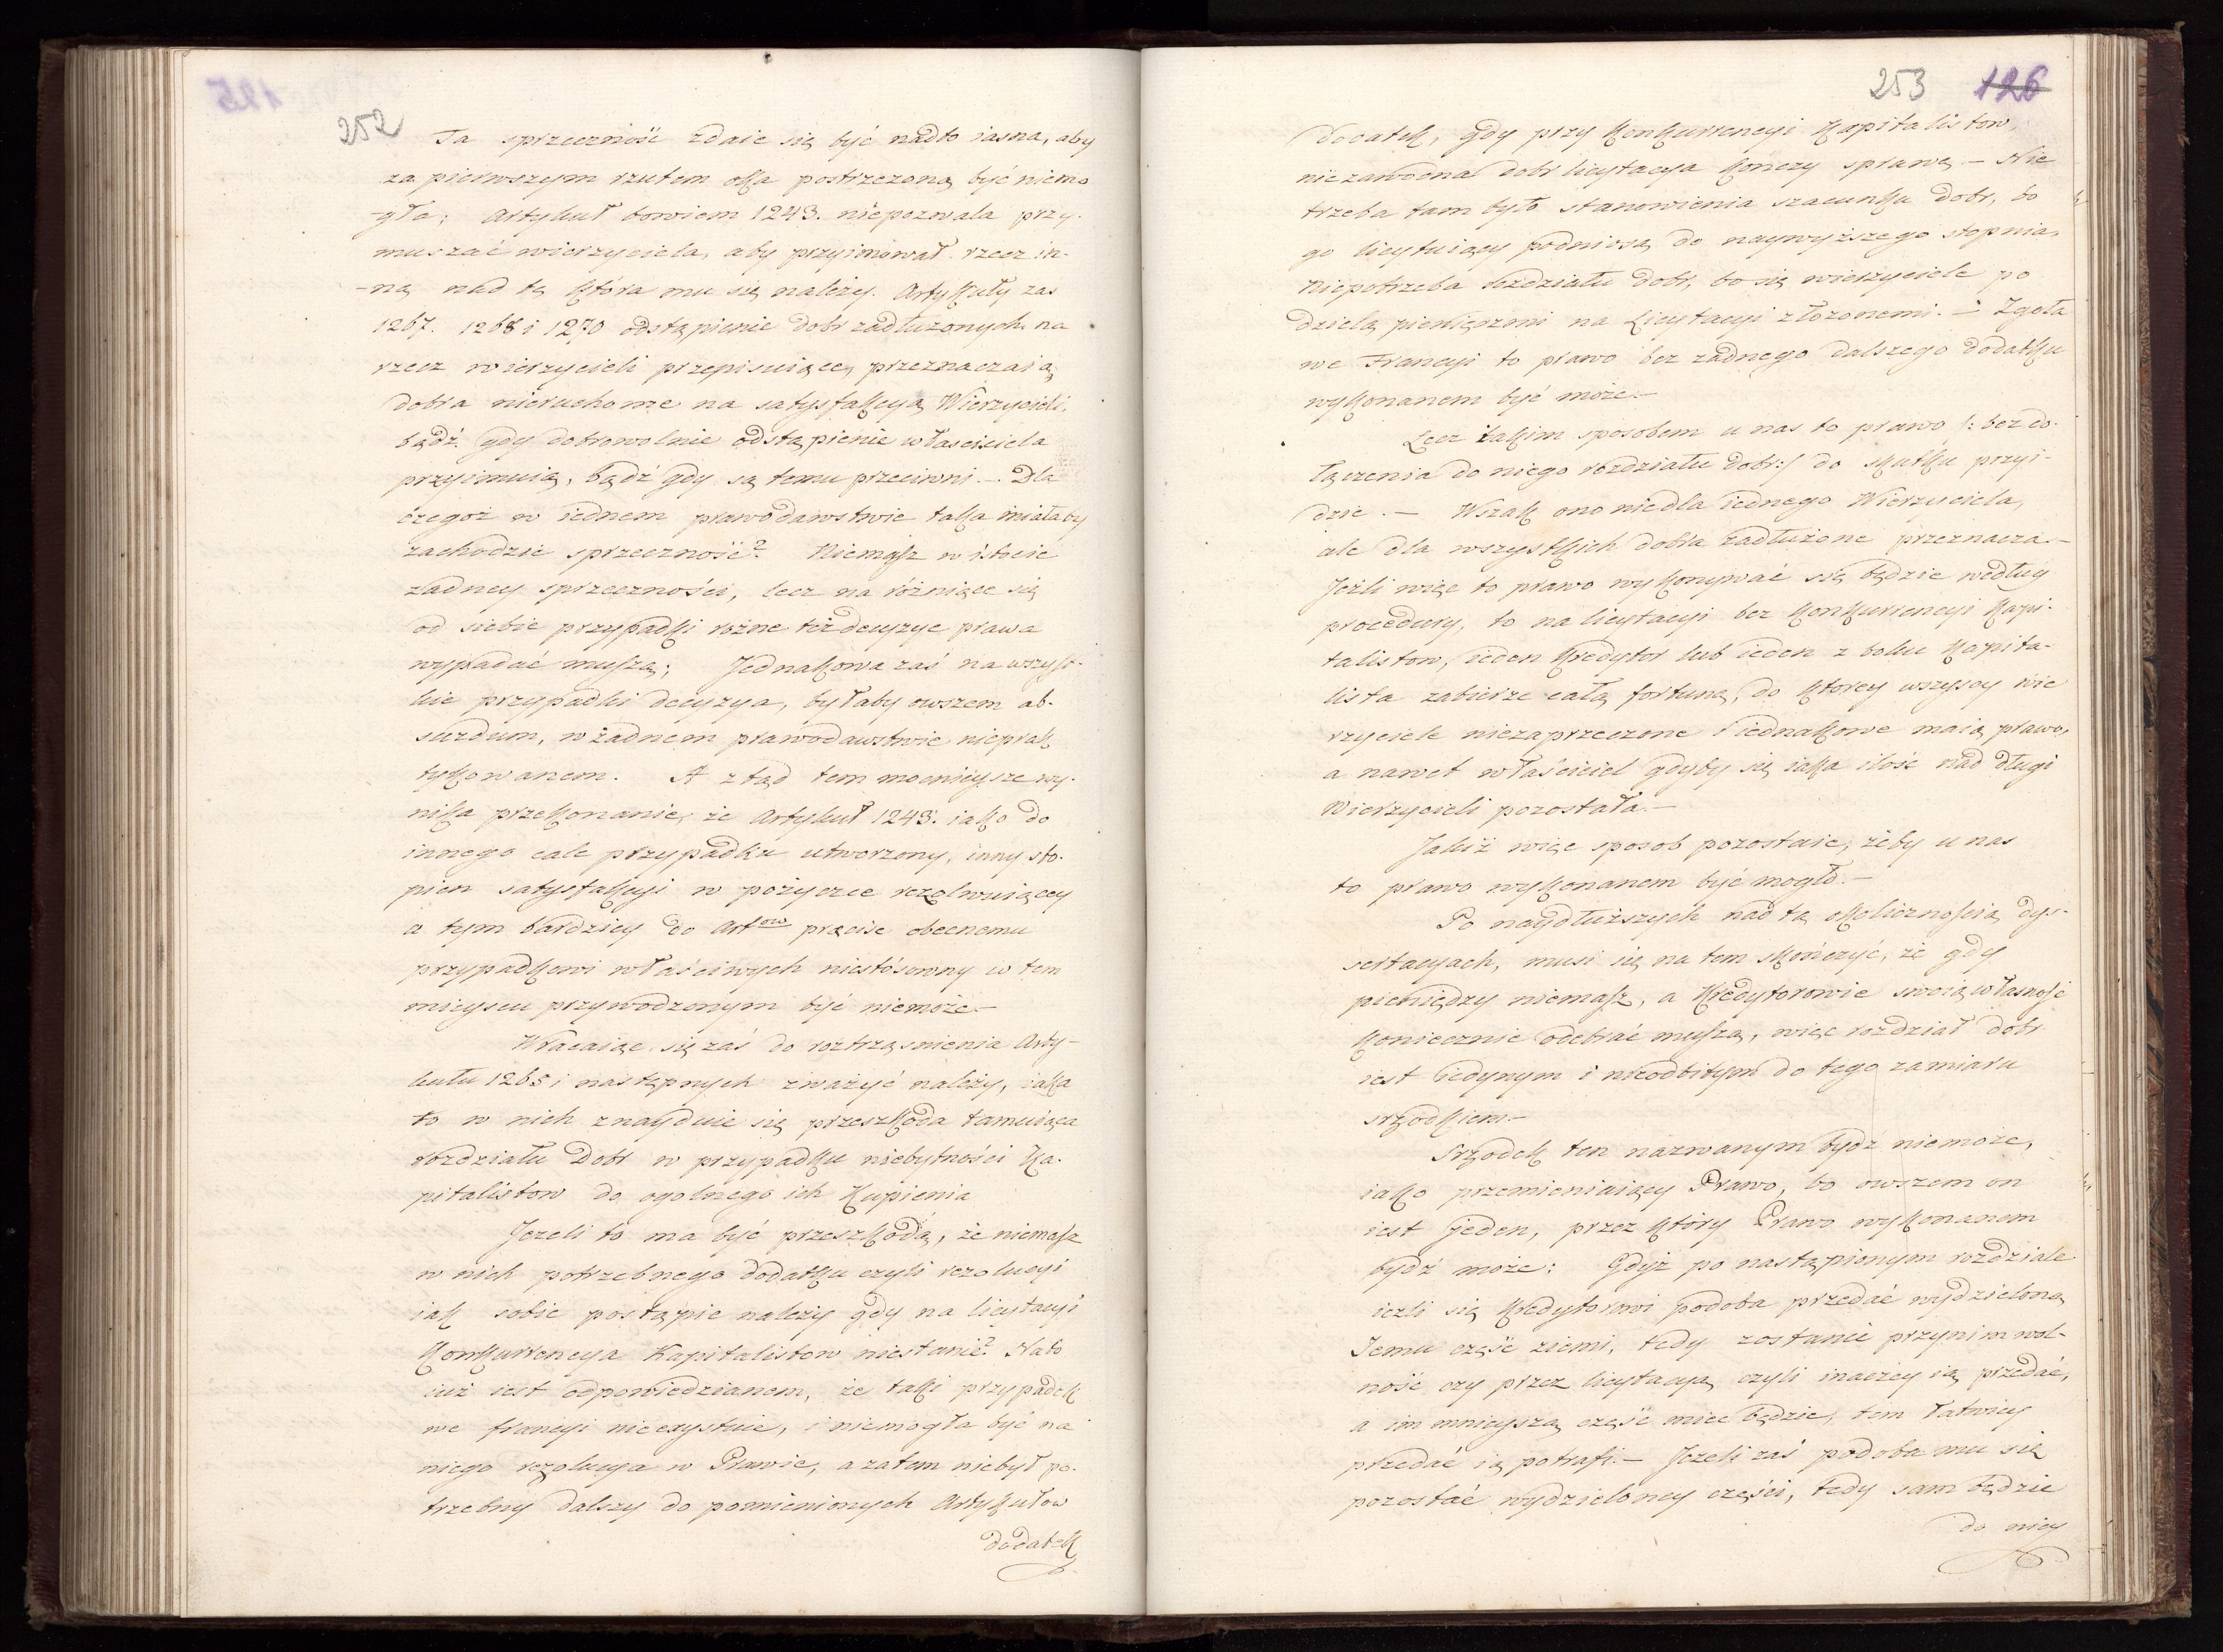 252
Ta sprzeczność zdaie się być nadto iasna, aby
za pierwszym rzutem oka postrzeżoną być niemo
-gła; Artykuł bowiem 1243. niepozwala przy-
muszać wierzyciela, aby przyimował rzecz in-
-ną nad tę która mu się należy. Artykuły zas
1267. 1268 i 1270 odstąpienie dobr zadłużonych na
rzecz wierzycieli przepisuiące, przeznaczaią
dobra nieruchome na satysfakcyą Wierzycieli,
bądź gdy dobrowolnie odstąpienie własciciela
przyimuią, bądź gdy są temu przeciwni. – Dla
czegoż w iednem prawodawstwie taka miałaby
zachodzić sprzeczność? Niemasz w istocie
żadney sprzeczności, lecz na różniące się
od siebie przypadki rożne też decyzye prawa
wypadać muszą; Jednakowa zaś na wszyst-
kie przypadki decyzya, byłaby owszem ab-
surdum, w żadnem prawodawstwie nieprak
tykowanem. A ztąd tem mocnieysze wy-
nika przekonanie, że Artykuł 1243. iako do
innego cale przypadku utworzony, inny sto-
pien satysfakcyi w pożyczce rezolwuiący
a tym bardziey do Artow precise obecnemu
przypadkowi właściwych niestósowny w tem
mieyscu przywodzonym być niemoże –
Wracaiąc się zaś do roztrząsnienia Arty-
kułu 1265 i następnych zważyć należy, iaka
to w nich znayduie się przeszkoda tamuiąca
rozdziału Dobr w przypadku niebytności Ka-
pitalistow do ogolnego ich Kupienia
Jeżeli to ma być przeszkodą, że niemasz
w nich potrzebnego dodatku czyli rezolucyi
iak sobie postąpić należy gdy na licytacyi
Konkurrencya Kapitalistow niestanie? Nato
iuż iest odpowiedzianem, że taki przypadek
we francyi nieexystuie, i niemogła być na
niego rezolucya w Prawie, a zatem niebył po-
trzebny dalszy do pomienionych Artykułow
dodatek
253 126
dodatek, gdy przy Konkurrencyi Kapitalistow,
niezawodna dobr licytacya kończy sprawę – Nie
trzeba tam było stanowienia szacunku dobr, bo
go licytuiący podniosą do naywyższego stopnia,
Niepotrzeba rozdziału dobr, bo się wierzyciele po
dzielą pieniędzmi na Licytacyi złożonemi. – Zgoła
we Francyi to prawo bez żadnego dalszego dodatku
wykonanem być może. –
Lecz iakim sposobem u nas to prawo /: bez do-
łączenia do niego rozdziału dobr:/ do skutku przyi-
dzie. – Wszak ono niedla iednego Wierzyciela,
ale dla wszystkich dobra zadłużone przeznacza –
Jeżli więc to prawo wykonywać się będzie według
procedury, to na licytacyi bez Konkurrencyi Kapi-
talistow, ieden Kredytor lub ieden z boku Kapita-
lista zabierze całą fortunę, do ktorey wszyscy wie
rzyciele niezaprzeczone i iednakowe maią prawo,
a nawet właściciel gdyby się iaka ilość nad długi
Wierzycieli pozostała. –
Jakiż więc sposob pozostaie, żeby u nas
to prawo wykonanem być mogło. –
Po naydłuższych nad tą okolicznością dys-
sertacyach, musi się na tem skończyć, że gdy
pieniędzy niemasz, a Kredytorowie swoią własnosć
koniecznie odebrać muszą, więc rozdział dobr
iest iedynym i nieodbitym do tego zamiaru
srzodkiem. –
Srzodek ten nazwanym bydź niemoże,
iako przemieniaiący Prawo, bo owszem on
iest jeden, przez który Prawo wykonanem
bydź może: Gdyż po nastąpionym rozdziale
ieżli się Kredytorowi podoba przedać wydzieloną
Jemu część ziemi, tedy zostanie przynim wol-
ność, czy przez licytacyą czyli inaczey ią przedać,
a im mnieyszą część mieć będzie, tem łatwiey
przedać ią potrafi. – Jeżeli zaś podoba mu się
pozostać wydzieloney części, tedy sam będzie
do niey